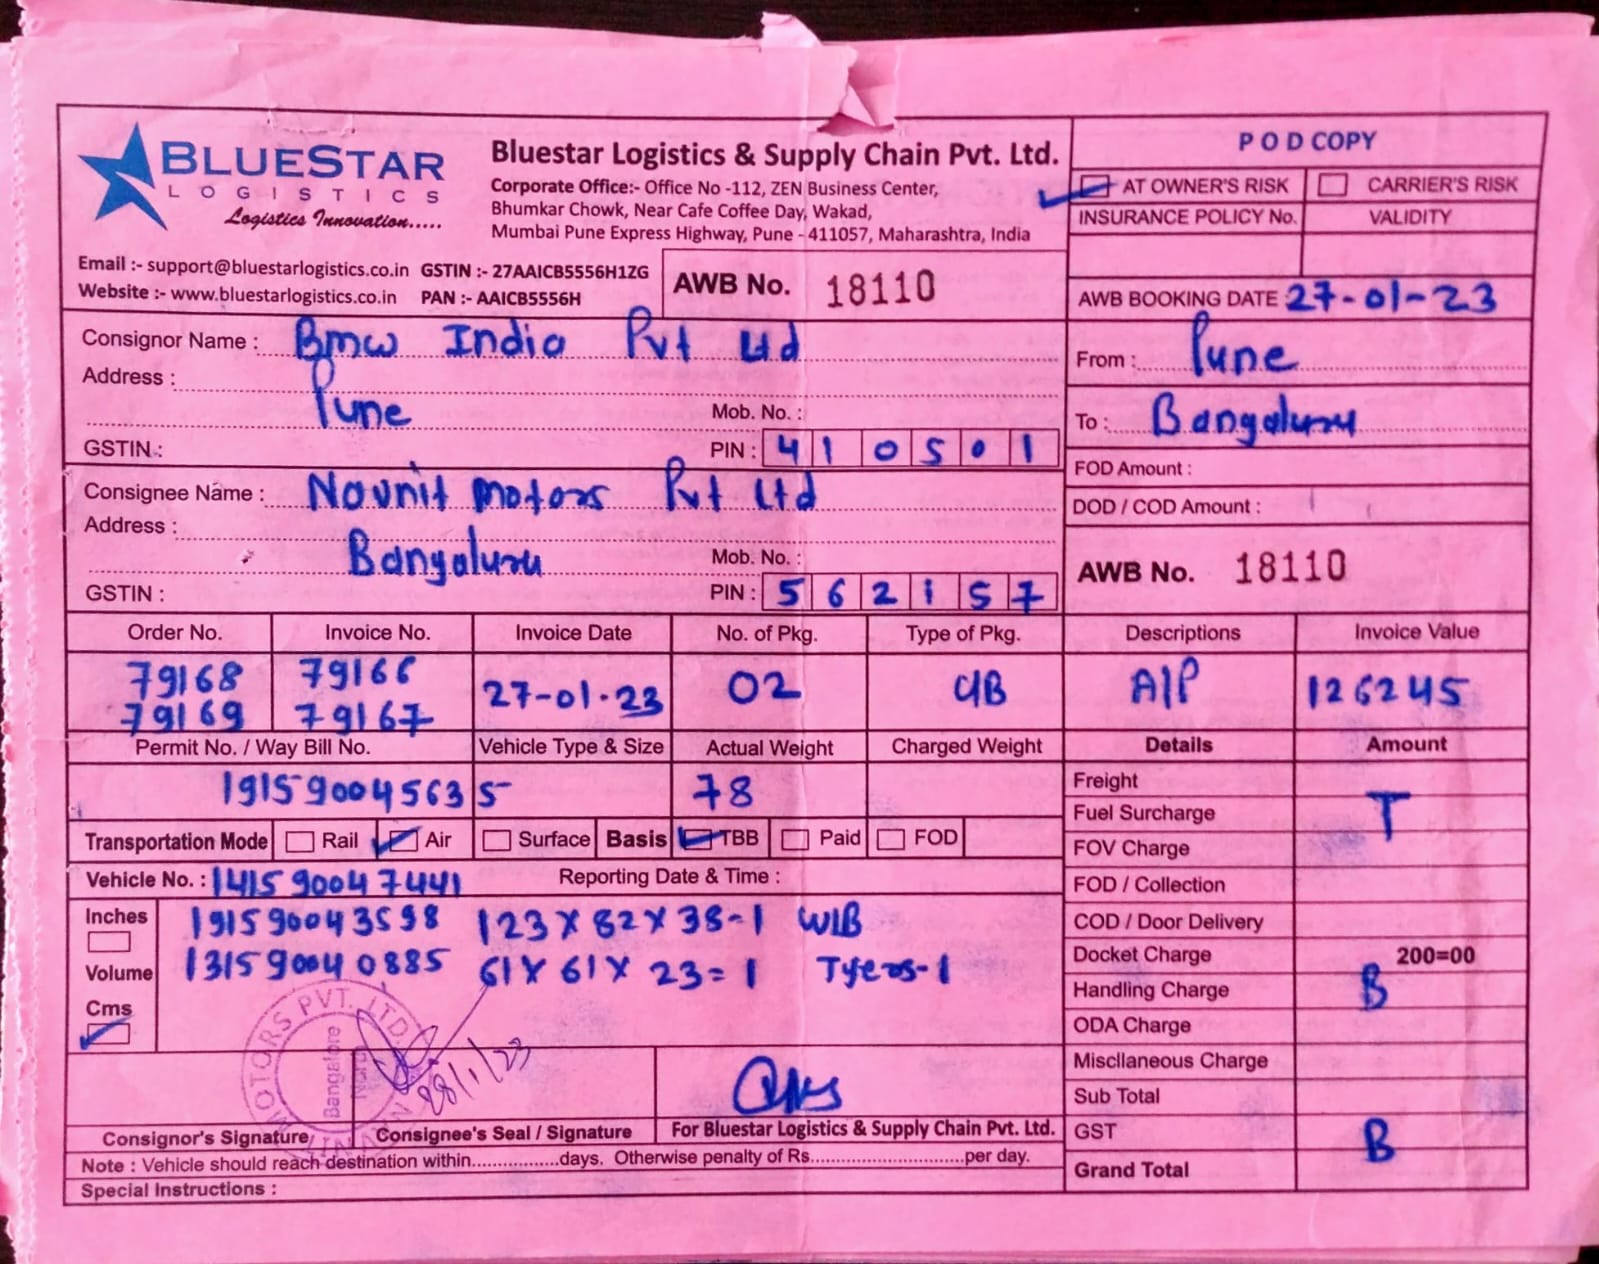 BLUESTAR
LOGISTICS
Logistics Innovation.....
Bluestar Logistics & Supply Chain Pvt. Ltd.
Corporate Office:- Office No -112, ZEN Business Center,
Bhumkar Chowk, Near Cafe Coffee Day, Wakad,
Mumbai Pune Express Highway, Pune - 411057, Maharashtra, India
Email :- support@bluestarlogistics.co.in GSTIN :- 27AAICB5556H1ZG
Website :- www.bluestarlogistics.co.in PAN :- AAICB5556H
AWB No. 18110
POD COPY
AT OWNER'S RISK CARRIER'S RISK
INSURANCE POLICY No. VALIDITY
AWB BOOKING DATE 27-01-23
Consignor Name : Bmw India Pvt Ltd
Address :
Pune Mob. No. :
GSTIN : PIN : 410501
From : Pune
To : Bangaluru
FOD Amount :
DOD / COD Amount :
Consignee Name : Novnit motors Pvt Ltd
Address :
Bangaluru Mob. No. :
GSTIN : PIN : 562157
AWB No. 18110
Order No. Invoice No. Invoice Date No. of Pkg. Type of Pkg. Descriptions Invoice Value
79168 79166 27-01-23 02 CIB A/P 126245
79169 79167
Permit No. / Way Bill No. Vehicle Type & Size Actual Weight Charged Weight Details Amount
191590045635 78
Transportation Mode Rail Air Surface Basis TBB Paid FOD
Vehicle No. : 141590047441 Reporting Date & Time :
Inches
191590043598 123 X 82 X 38-1 WIB
131590040885 61 X 61 X 23=1 Tyers-1
Volume
Cms
Freight
Fuel Surcharge T
FOV Charge
FOD / Collection
COD / Door Delivery
Docket Charge 200=00
Handling Charge B
ODA Charge
Miscllaneous Charge
Sub Total
GST B
Grand Total
MOTORS PVT. LTD.
Bangalore
28/1/23
Consignor's Signature Consignee's Seal / Signature For Bluestar Logistics & Supply Chain Pvt. Ltd.
Note : Vehicle should reach destination within.................days. Otherwise penalty of Rs..............................per day.
Special Instructions :